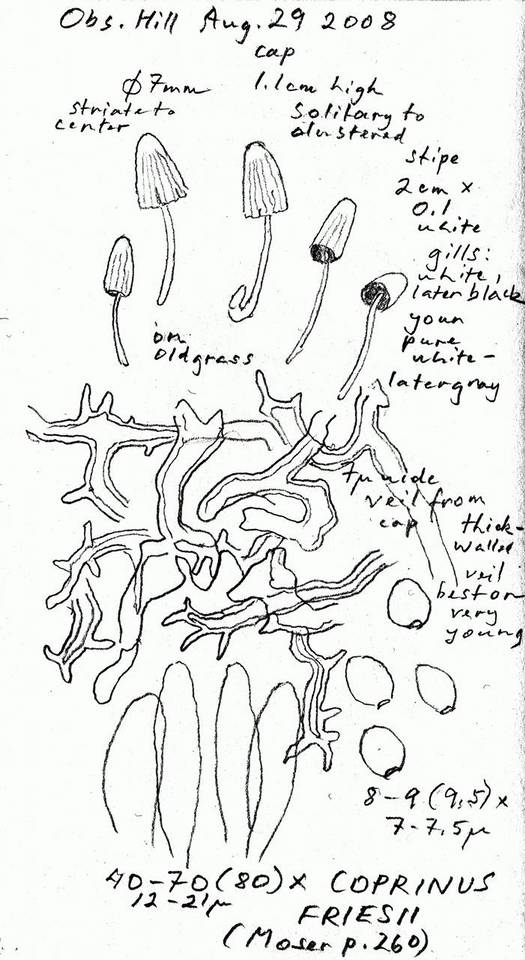 Obs. Hill Aug. 29 2008
cap
ϕ 7mm 1.1cm high
striate to
center
solitary to
clustered
stipe
2cm x
0.1
white
gills:
white,
later black
youn
pure
white-
later gray
on
old grass
7µ wide
veil from
cap
thick-
walled
veil
best on
very
young
8-9 (9,5) x
7-7,5µ
40-70 (80) x
12-21µ
COPRINUS
FRIESII
(Moser p.260)